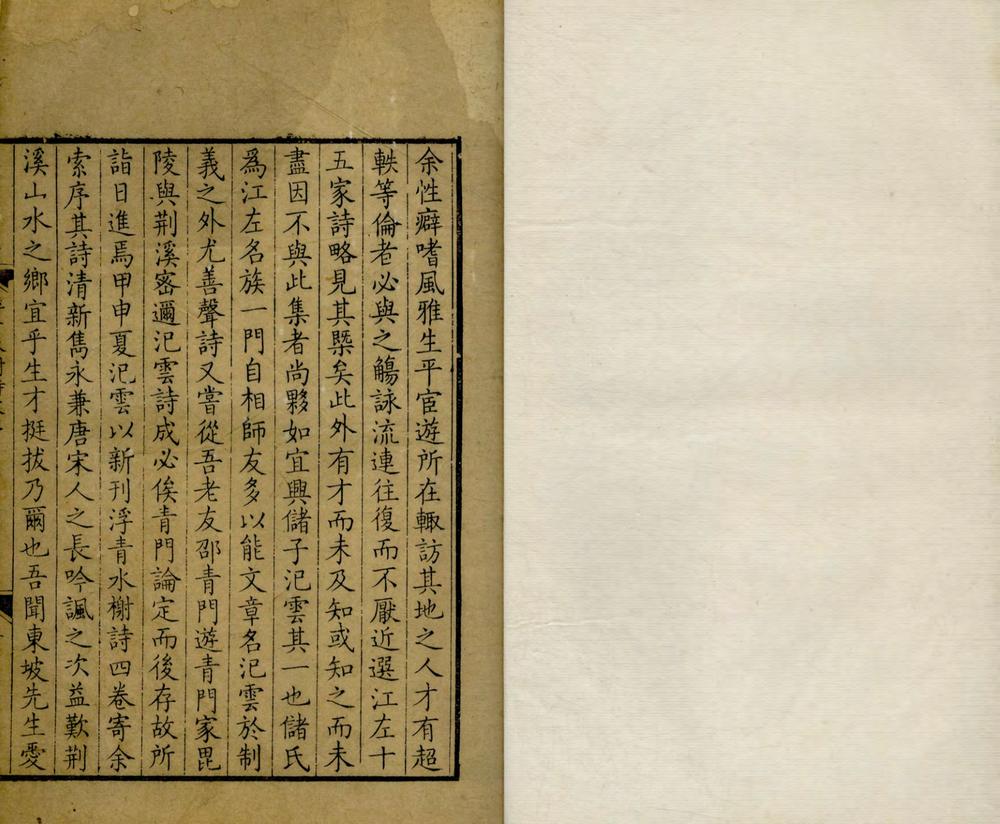 余性癖嗜風雅生平宦遊所在輙訪其地之人才有超
軼等倫者必與之觴詠流連往復而不厭近選江左十
五家詩略見其槩矣此外有才而未及知或知之而未
盡因不與此集者尚夥如宜興儲子汜雲其一也儲氏
爲江左名族一門自相師友多以能文章名汜雲於制
義之外尤善聲詩又嘗從吾老友邵青門遊青門家毘
陵與荆溪密邇汜雲詩成必俟青門論定而後存故所
詣日進焉甲申夏汜雲以新刊浮青水榭詩四卷寄余
索序其詩清新雋永兼唐宋人之長吟諷之次益歎荆
溪山水之鄉宜乎生才挺拔乃爾也吾聞東坡先生愛